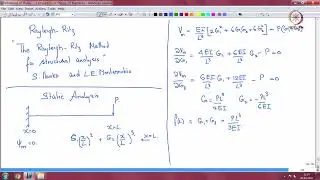 Rayleigh-Ritz
"The Rayleigh-Ritz Method
for structural analysis"
S. Ilanko and L.E. Monterrubio
Static Analysis
P
x=0
x=L
ψ_m = 0
G₁(x/L)² + G₂(x/L)³
x=L
∂V_m/∂G₁ = 4EI/L³ G₁ + 6EI/L³ G₂ - P = 0
∂V_m/∂G₂ = 6EI/L³ G₁ + 12EI/L³ G₂ - P = 0
G₁ = PL³/2EI G₂ = -PL³/6EI
f(L) = G₁ + G₂ = PL³/3EI